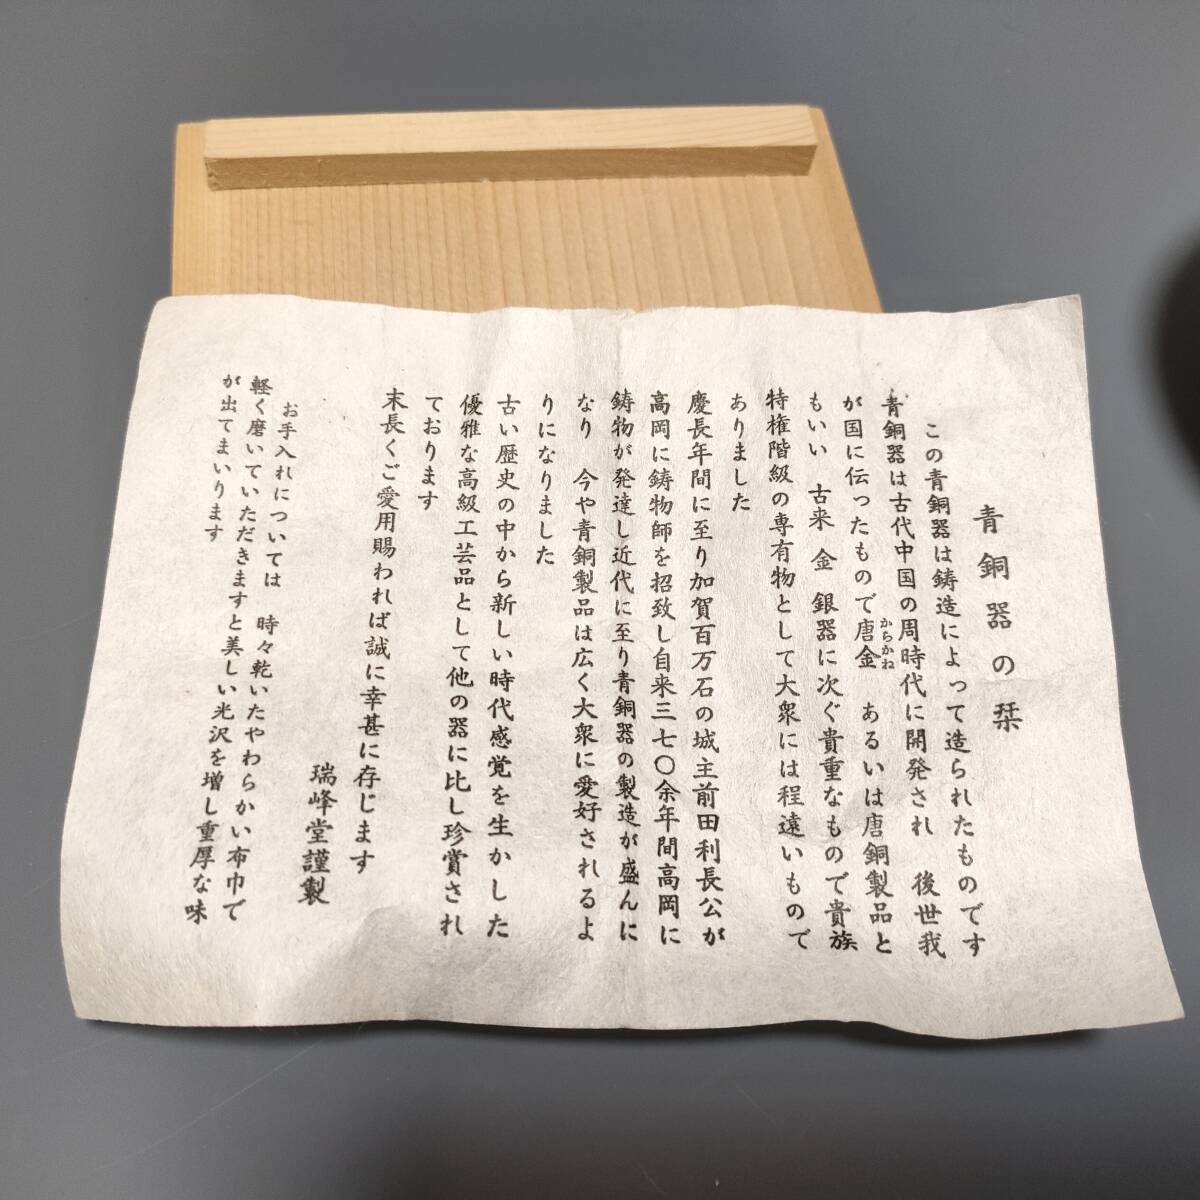 青銅器の栞
この青銅器は鋳造によって造られたものです
青銅器は古代中国の周時代に開発され　後世我
が国に伝ったもので唐金　あるいは唐銅製品と
からかね
もいい　古来　金　銀器に次ぐ貴重なもので貴族
特権階級の専有物として大衆には程遠いもので
ありました
慶長年間に至り加賀百万石の城主前田利長公が
高岡に鋳物師を招致し自来三七〇余年間高岡に
鋳物が発達し近代に至り青銅器の製造が盛んに
なり　今や青銅製品は広く大衆に愛好されるよ
りになりました
古い歴史の中から新しい時代感覚を生かした
優雅な高級工芸品として他の器に比し珍賞され
ております
末長くご愛用賜われば誠に幸甚に存じます
瑞峰堂謹製
お手入れについては　時々乾いたやわらかい布巾で
軽く磨いていただきますと美しい光沢を増し重厚な味
が出てまいります